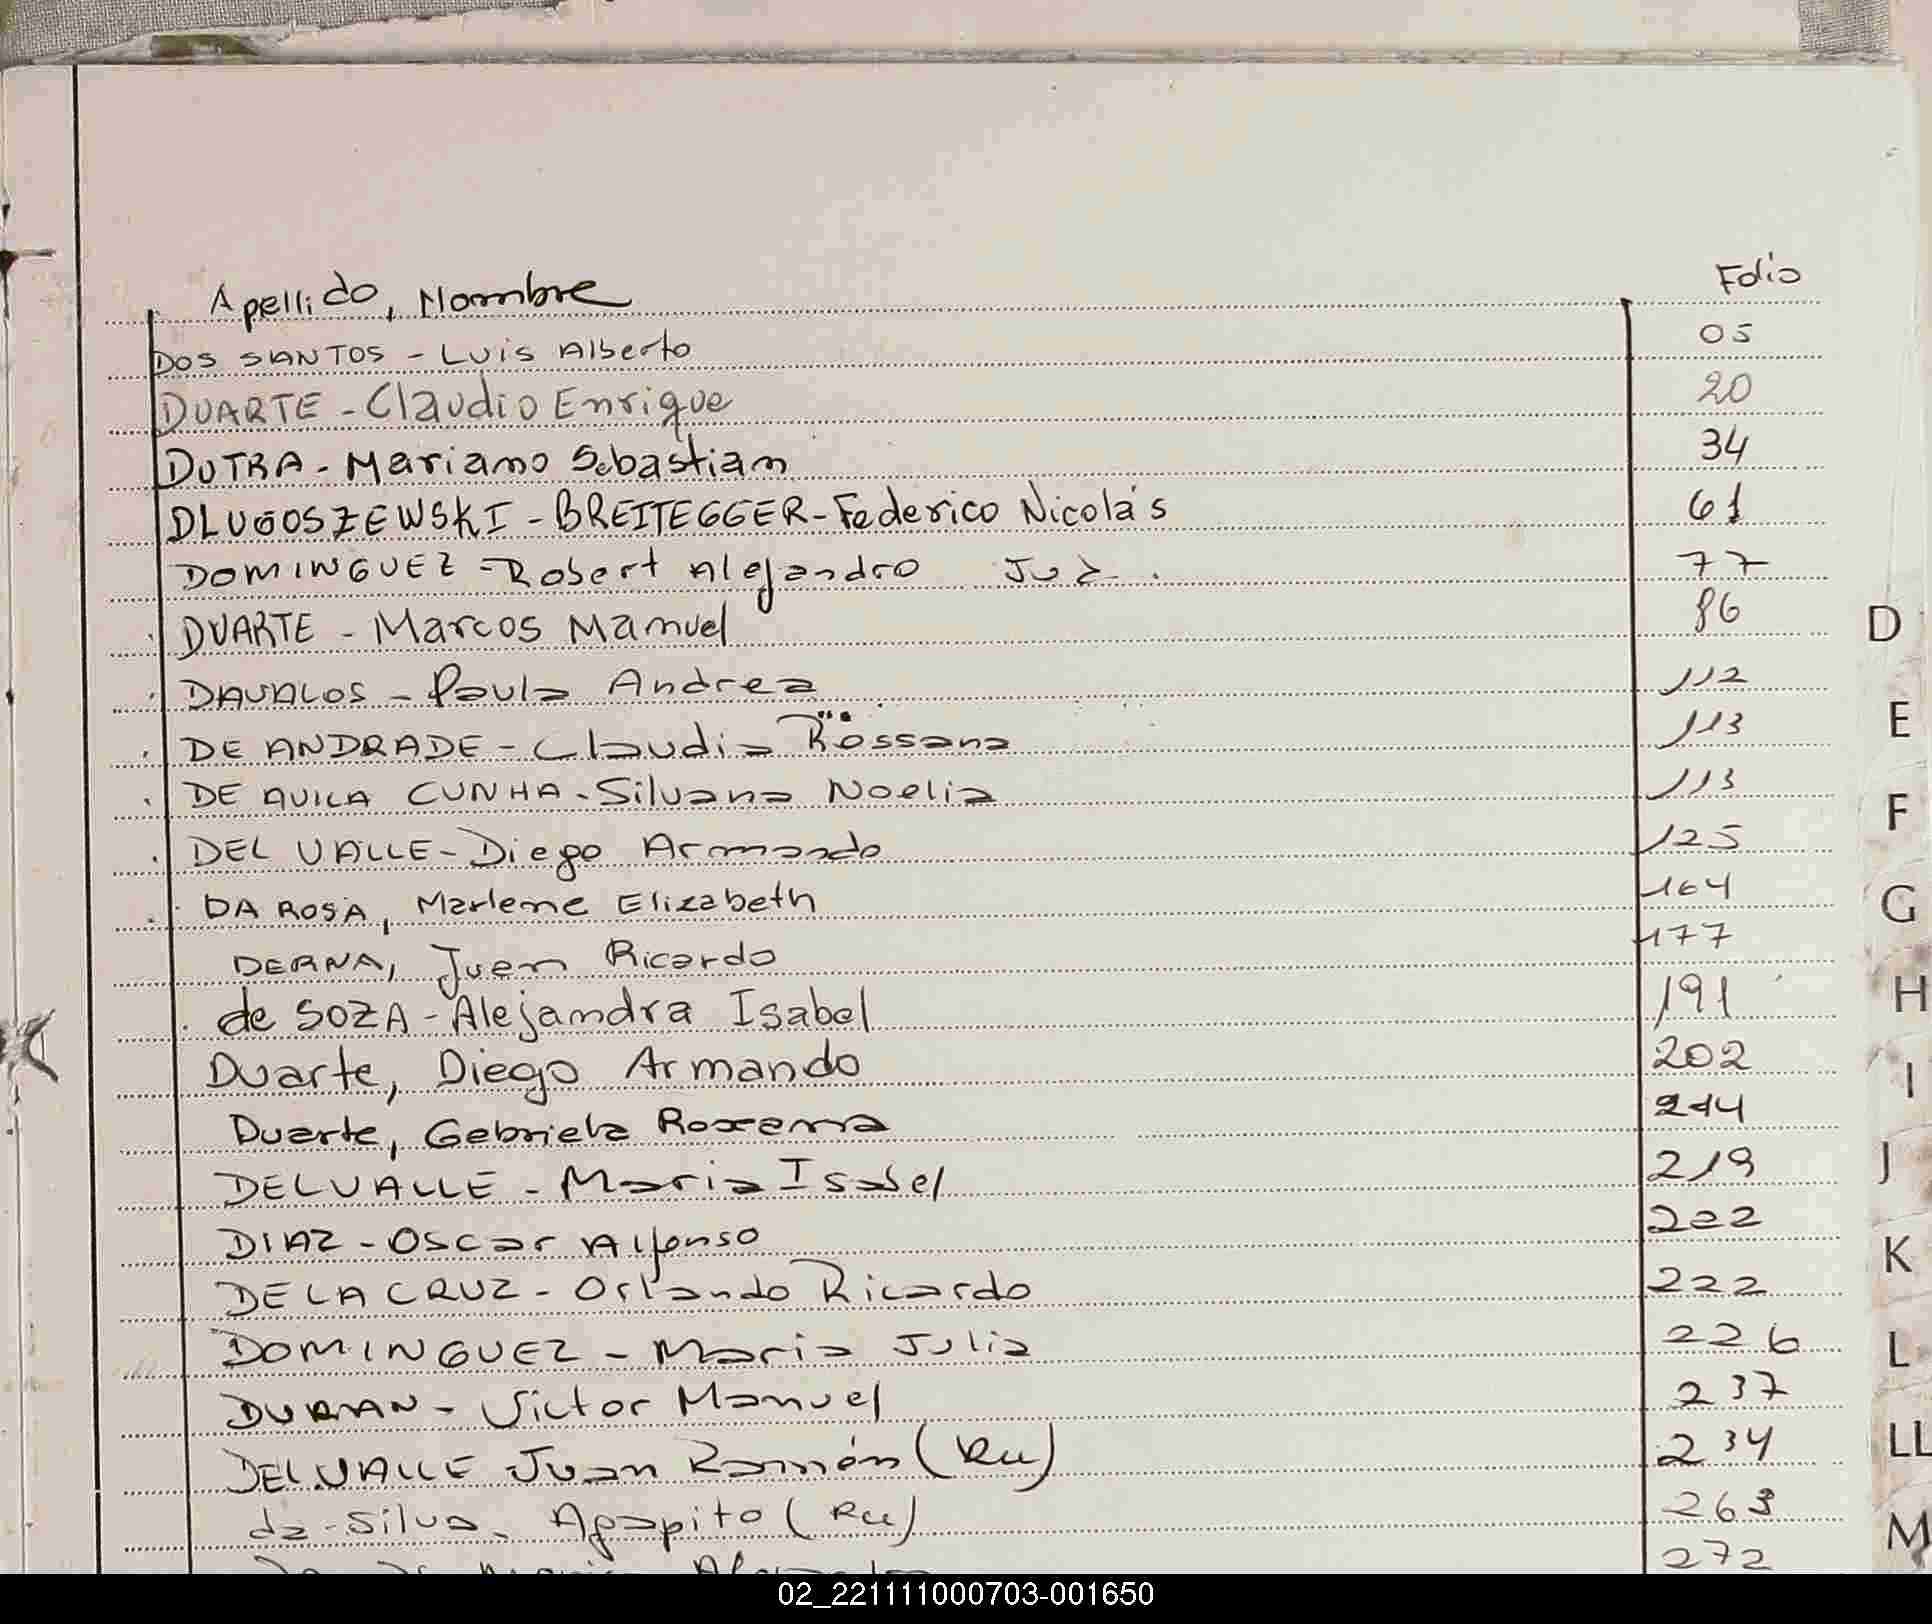 Apellido, Nombre Folio
DOS SANTOS - Luis Alberto 05
DUARTE - Claudio Enrique 20
DUTRA - Mariano Sebastian 34
DLUGOSZEWSKI - BREITEGGER - Federico Nicolás 61
DOMINGUEZ - Robert Alejandro Juz. 77
DUARTE - Marcos Manuel 86
D
DAVALOS - Paula Andrea 112
E
DE ANDRADE - Claudia Rossana 113
DE AVILA CUNHA - Silvana Noelia 113
F
DEL VALLE - Diego Armando 125
DA ROSA, Marlene Elizabeth 164
G
DERNA, Juan Ricardo 177
de SOZA - Alejandra Isabel 191
H
Duarte, Diego Armando 202
I
Duarte, Gabriela Roxana 214
DELVALLE - Maria Isabel 219
J
DIAZ - Oscar Alfonso 222
K
DE LA CRUZ - Orlando Ricardo 222
DOMINGUEZ - Maria Julia 226
L
DURAN - Victor Manuel 237
DELVALLE Juan Ramón (Ru) 234
LL
da Silva, Agapito (Ru) 263
M
272
02_221111000703-001650